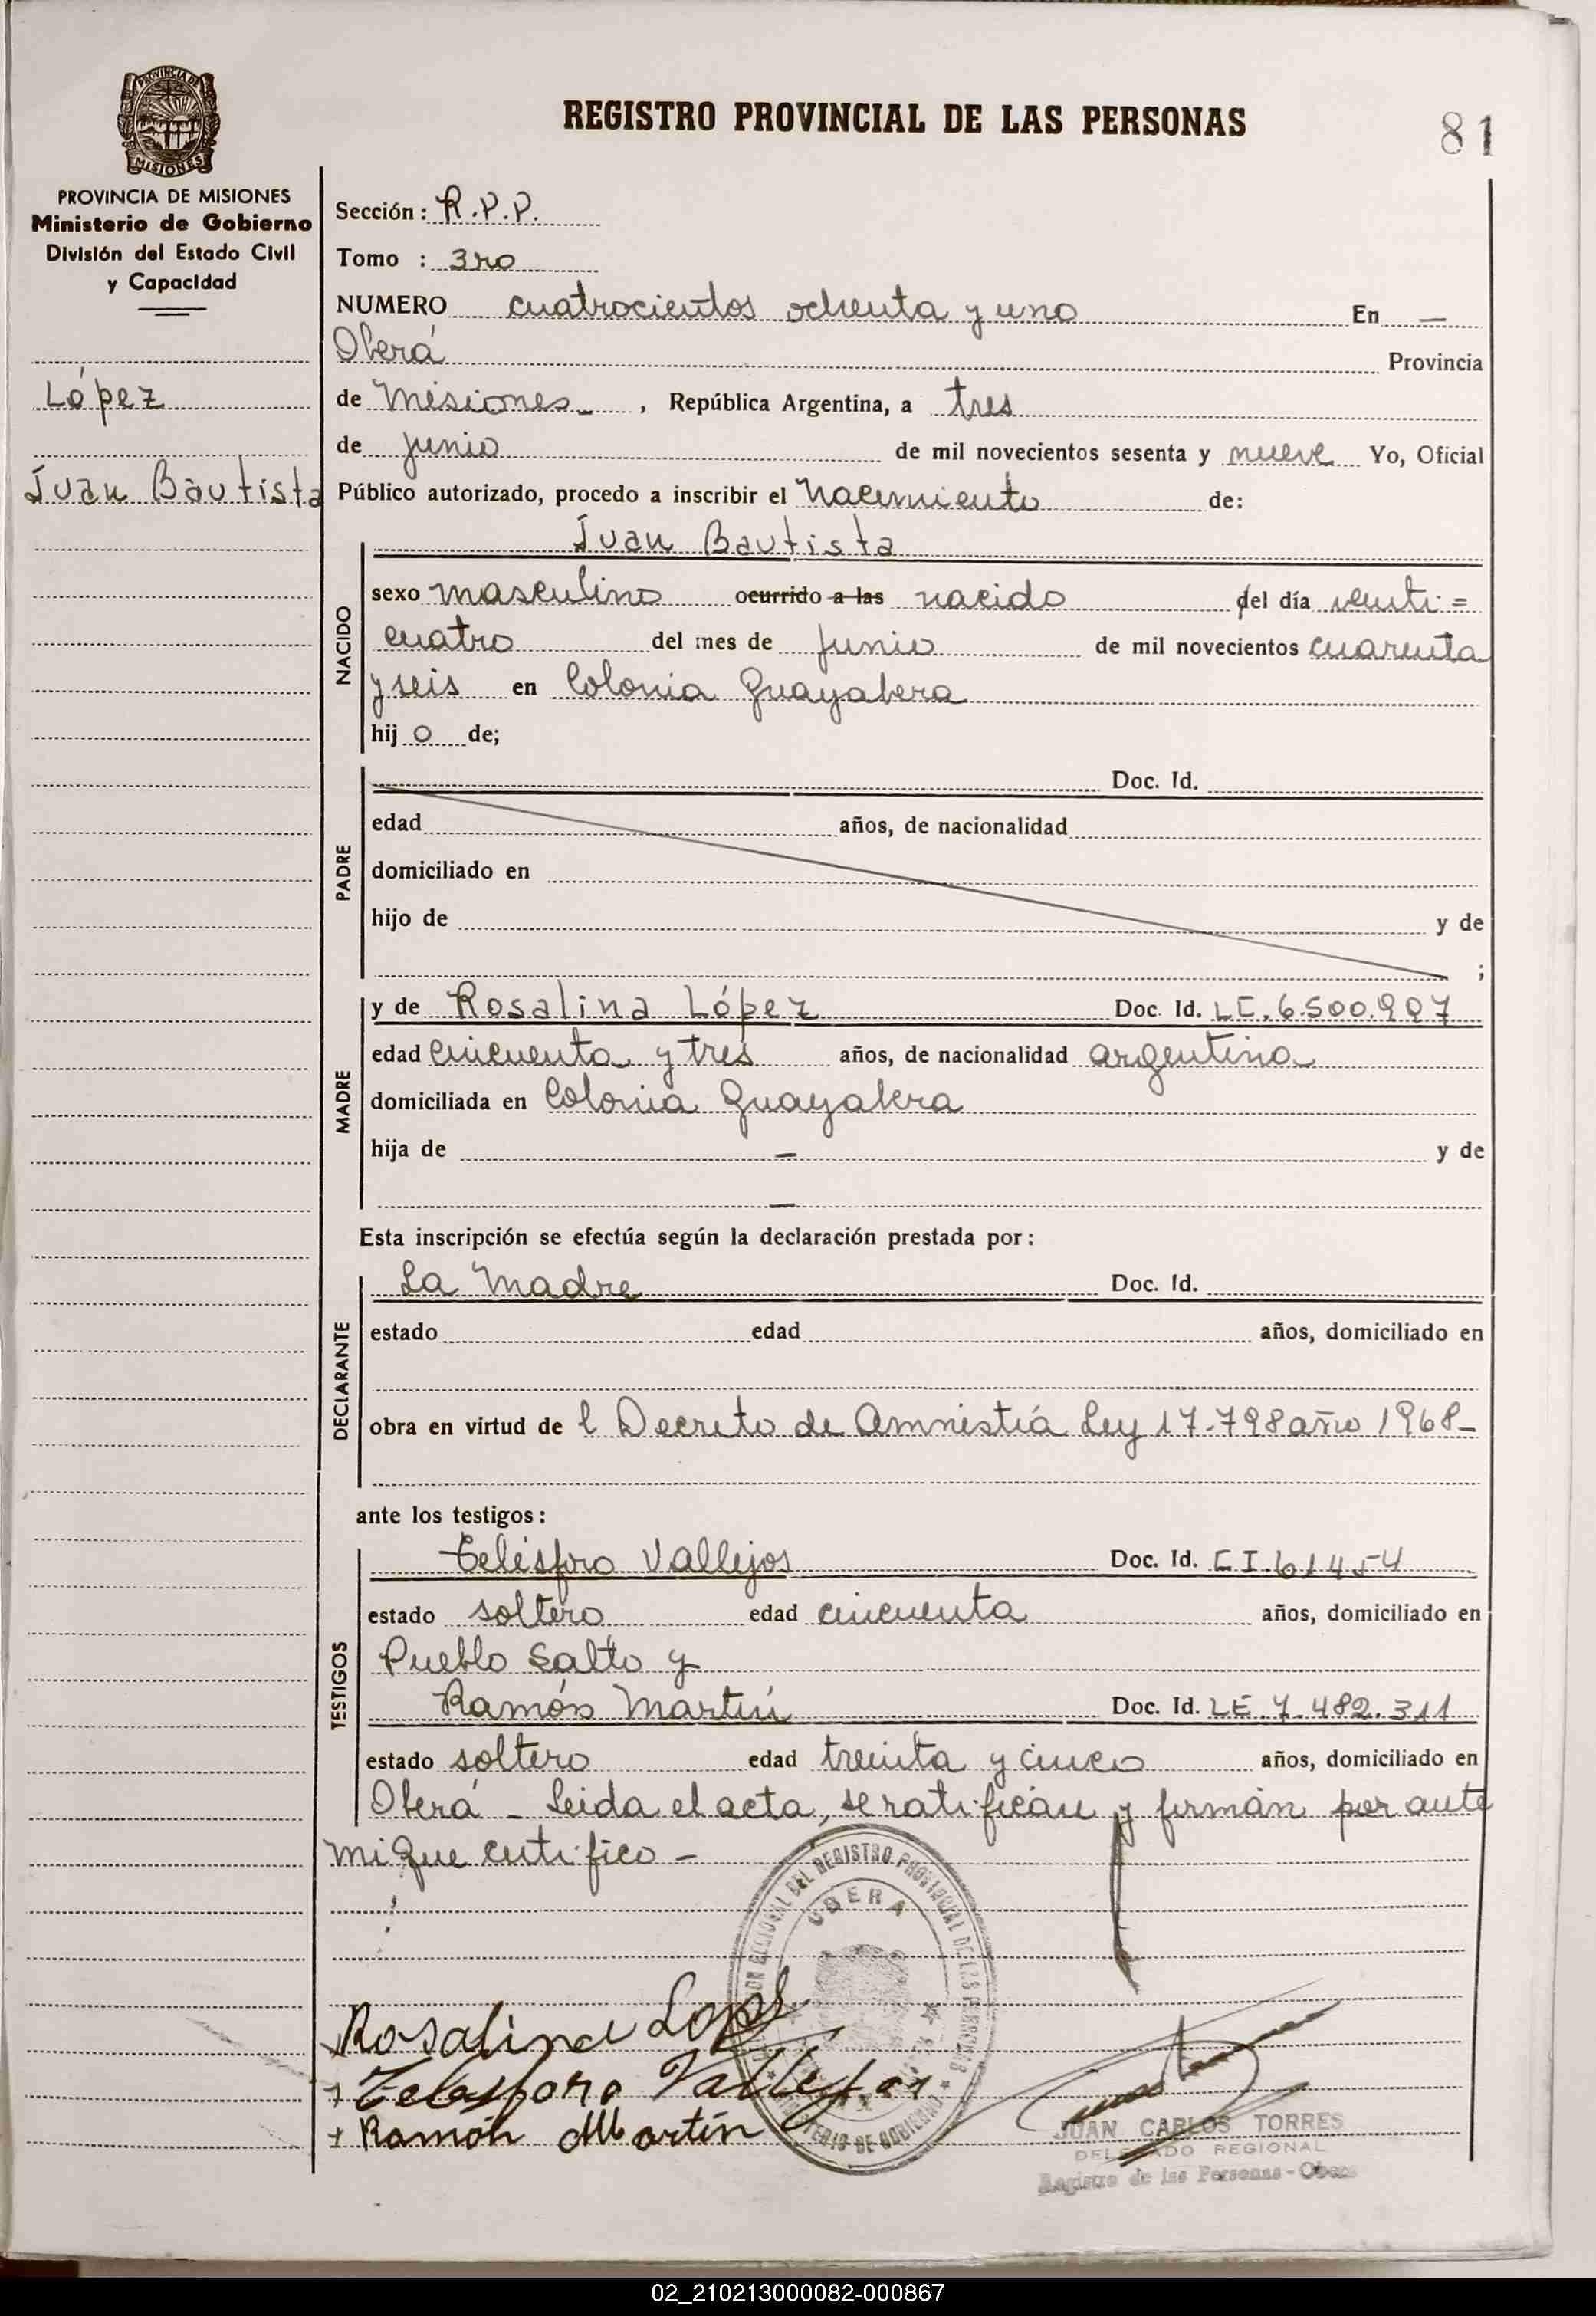 REGISTRO PROVINCIAL DE LAS PERSONAS
81
PROVINCIA DE MISIONES
PROVINCIA DE MISIONES
Ministerio de Gobierno
División del Estado Civil
y Capacidad
López
Juan Bautista
Sección: R.P.P.
Tomo : 3ro
NUMERO cuatrocientos ochenta y uno En —
Oberá Provincia
de Misiones – , República Argentina, a tres
de junio de mil novecientos sesenta y nueve Yo, Oficial
Público autorizado, procedo a inscribir el Nacimiento de:
Juan Bautista
NACIDO
sexo masculino ocurrido a las nacido del día venti=
cuatro del mes de Junio de mil novecientos cuarenta
y seis en Colonia Guayabera
hij o de;
PADRE
Doc. Id.
edad años, de nacionalidad
domiciliado en
hijo de y de
;
MADRE
y de Rosalina López Doc. Id. LC.6.500.907
edad cincuenta y tres años, de nacionalidad argentina
domiciliada en Colonia Guayabera
hija de — y de
—
Esta inscripción se efectúa según la declaración prestada por:
DECLARANTE
La Madre Doc. Id.
estado edad años, domiciliado en
obra en virtud de l Decreto de Amnistía Ley 17.798 año 1968-
ante los testigos:
TESTIGOS
Telésforo Vallejos Doc. Id. CI.61454
estado soltero edad cincuenta años, domiciliado en
Pueblo Salto y
Ramón Martín Doc. Id. LE.7.482.311
estado soltero edad treinta y cinco años, domiciliado en
Oberá – Leida el acta, se ratifican y firman por ante
mi que certifico –
DEL REGISTRO PROVINCIAL DE LAS PERSONAS
OBERA
MINISTERIO DE GOBIERNO
Rosalina Lopez
+ Telesforo Vallejos
+ Ramón Martín
JUAN CARLOS TORRES
DELEGADO REGIONAL
Registro de las Personas - Obera
02_210213000082-000867